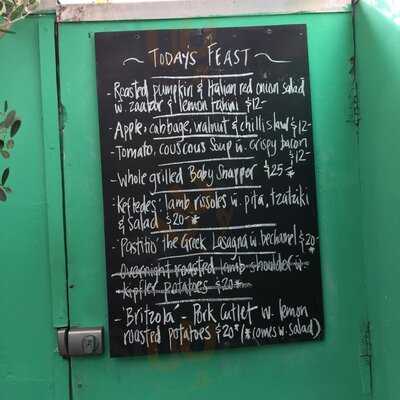 ~ TODAY'S FEAST ~
- Roasted pumpkin & Italian red onion salad
w. zaatar & lemon tahini $12-
- Apple, cabbage, walnut & chilli slaw $12-
- Tomato, couscous Soup w. crispy bacon
$12-
- Whole grilled Baby Snapper $25*
- Keftedes: lamb rissoles w. pita, tzatziki
& Salad $20-*
- 'Pastitio' the Greek Lasagna w bechamel $20-
- Overnight roasted lamb shoulder w.
kipfler potatoes $20-*
- 'Brizola' - Pork Cutlet w. lemon
roasted potatoes $20* (* comes w. salad)